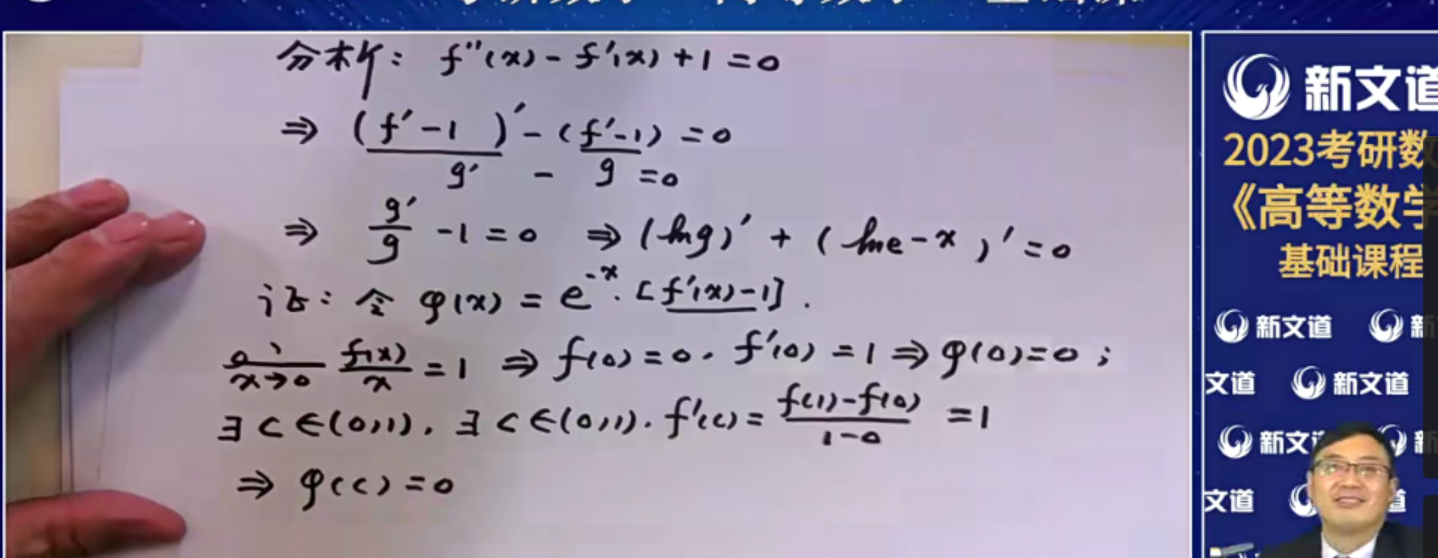 分析: f''(x) - f'(x) + 1 = 0
⇒ (f' - 1 )' - (f' - 1) = 0
g' - g = 0
⇒ g'/g - 1 = 0 ⇒ (ln g)' + (ln e^-x)' = 0
证: 令 φ(x) = e^-x · [f'(x) - 1] .
x→0 f(x)/x = 1 ⇒ f(0) = 0 . f'(0) = 1 ⇒ φ(0) = 0 ;
∃ c ∈ (0,1) . ∃ c ∈ (0,1) . f'(c) = f(1) - f(0) / 1 - 0 = 1
⇒ φ(c) = 0
新文道
2023考研数
《高等数学
基础课程
新文道 新
文道 新文道
新文 新
文道 道